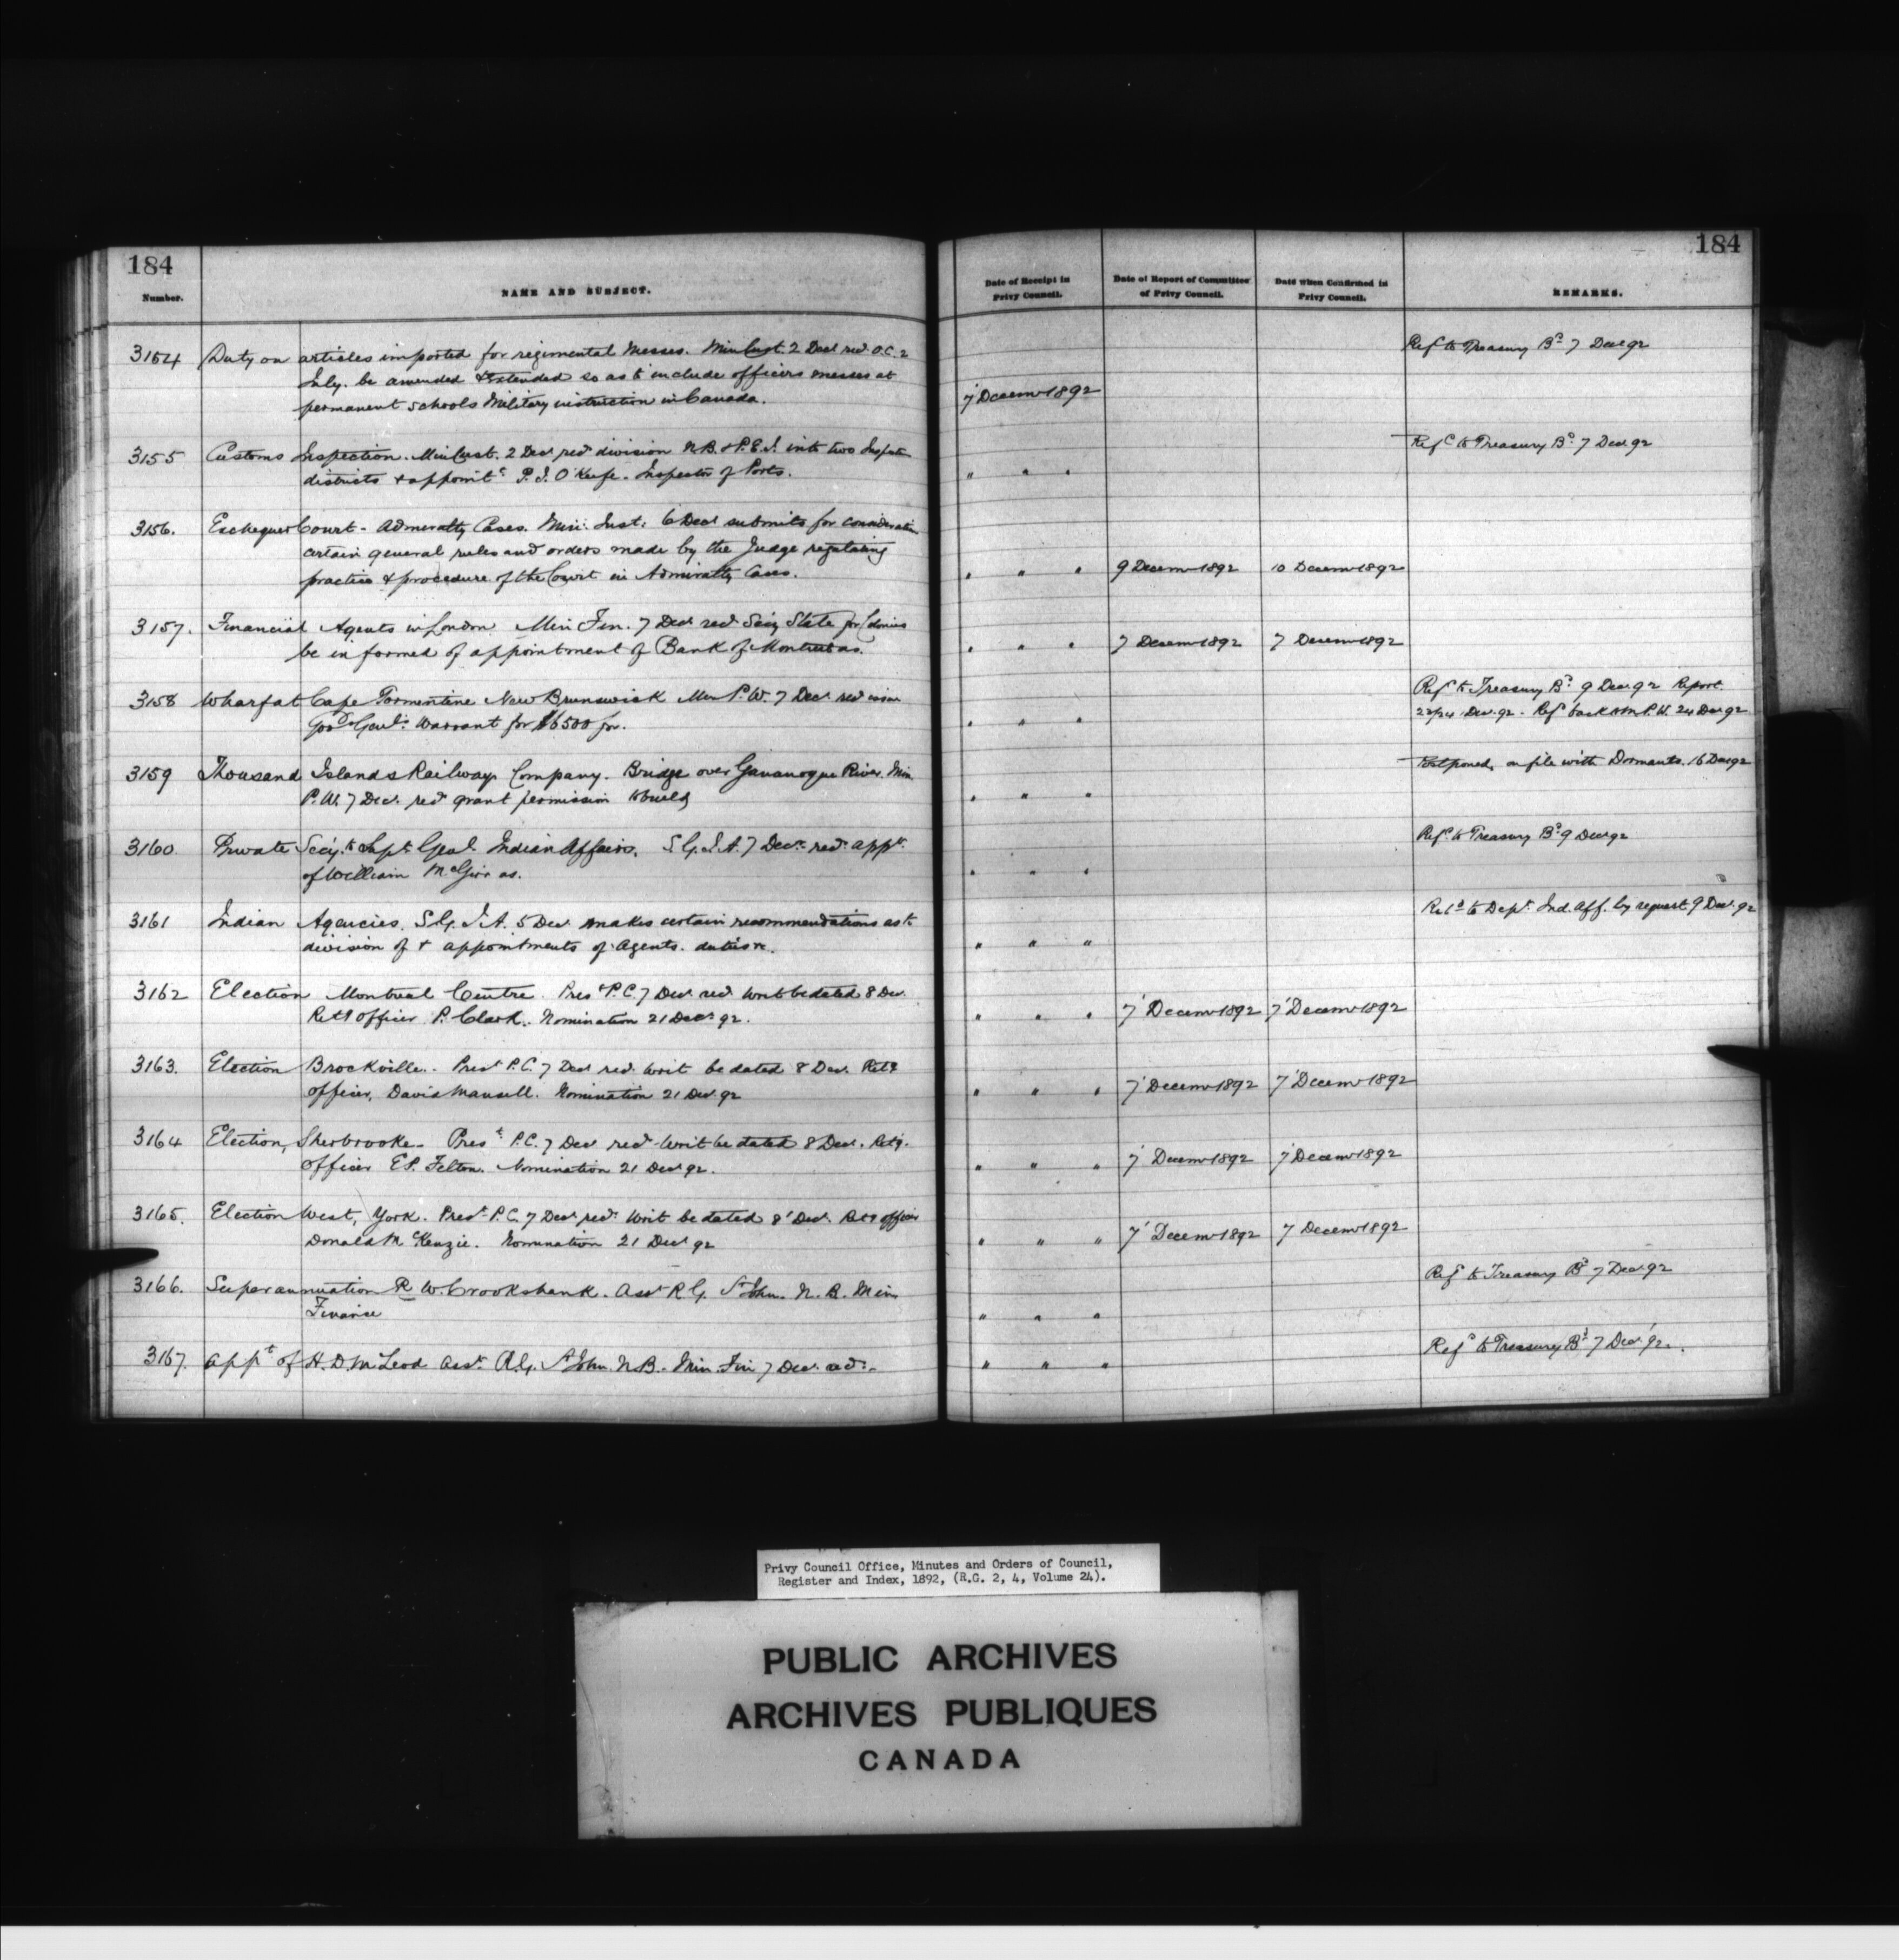 184
184
Number.
NAME AND SUBJECT.
Date of Receipt in
Privy Council.
Date of Report of Committee
of Privy Council.
Date when Confirmed in
Privy Council.
REMARKS.
3154 Duty on articles imported for regimental Messes. Min Cust. 2 Decr recd O.C. 2
July. be amended & extended so as to include officers messes at
permanent schools Military instruction in Canada.
7' Decemr 1892
Refd to Treasury Bd 7 Decr 92
3155 Customs Inspection. Min Cust. 2 Decr recd division N.B. & P.E.I. into two
districts & appointt P.I. O'Keefe. Inspector of Ports.
" " "
Refd to Treasury Bd 7 Decr 92
3156. Exchequer Court - Admiralty Cases. Min: Just: 6 Decr submits for consideration
certain general rules and orders made by the Judge regulating
practice & procedure of the Court in Admiralty Cases.
" " " 9 Decemr 1892 10 Decemr 1892
3157. Financial Agents in London Min Fin. 7 Decr recd Secy State for Colonies
be informed of appointment of Bank of Montreal as.
" " " 7 Decemr 1892 7 Decemr 1892
3158 Wharf at Cape Tormentine New Brunswick Min P.W. 7 Decr recd issue
Govr Genl's Warrant for $6500 for.
" " "
Refd to Treasury Bd 9 Decr 92 Report
22/24 Decr 92 - Refd back to M.P.W. 24 Decr 92
3159 Thousand Islands Railway Company. Bridge over Gananoque River. Min
P.W. 7 Decr recd grant permission to build
" " "
Postponed, on file with Dormants. 16 Decr 92
3160 Private Secy. to Supt. Genl. Indian Affairs. S.G.I.A. 7 Decr recd appt
of William McGirr as.
" " "
Refd to Treasury Bd 9 Decr 92
3161 Indian Agencies. S.G.I.A. 5 Decr makes certain recommendations as to
division of & appointments of Agents. duties &c.
" " "
Retd to Dept. Ind. Aff. by request 9 Decr 92
3162 Election Montreal Centre. Prest P.C. 7 Decr recd Writ be dated 8 Decr
Retg officer P. Clark. Nomination 21 Decr 92.
" " " 7' Decemr 1892 7' Decemr 1892
3163. Election Brockville. Prest P.C. 7 Decr recd writ be dated 8 Decr. Retg
officer, David Mansell. Nomination 21 Decr 92
" " " 7' Decemr 1892 7' Decemr 1892
3164 Election, Sherbrooke. Prest P.C. 7 Decr recd Writ be dated 8 Decr. Retg.
officer E.P. Felton. Nomination 21 Decr 92.
" " " 7' Decemr 1892 7' Decemr 1892
3165. Election West, York. Prest P.C. 7 Decr recd Writ be dated 8' Decr. Retg officer
Donald McKenzie. Nomination 21 Decr 92
" " " 7' Decemr 1892 7 Decemr 1892
3166. Superannuation R.W. Crookshank. Asst R.G. St John. N.B. Min
Finance
" " "
Refd to Treasury Bd 7 Decr 92
3167. Appt of H.D. McLeod Asst. R.G. St John N.B. Min Fin 7 Decr recd
" " "
Refd to Treasury Bd 7 Decr 92.
Privy Council Office, Minutes and Orders of Council,
Register and Index, 1892, (R.G. 2, 4, Volume 24).
PUBLIC ARCHIVES
ARCHIVES PUBLIQUES
CANADA